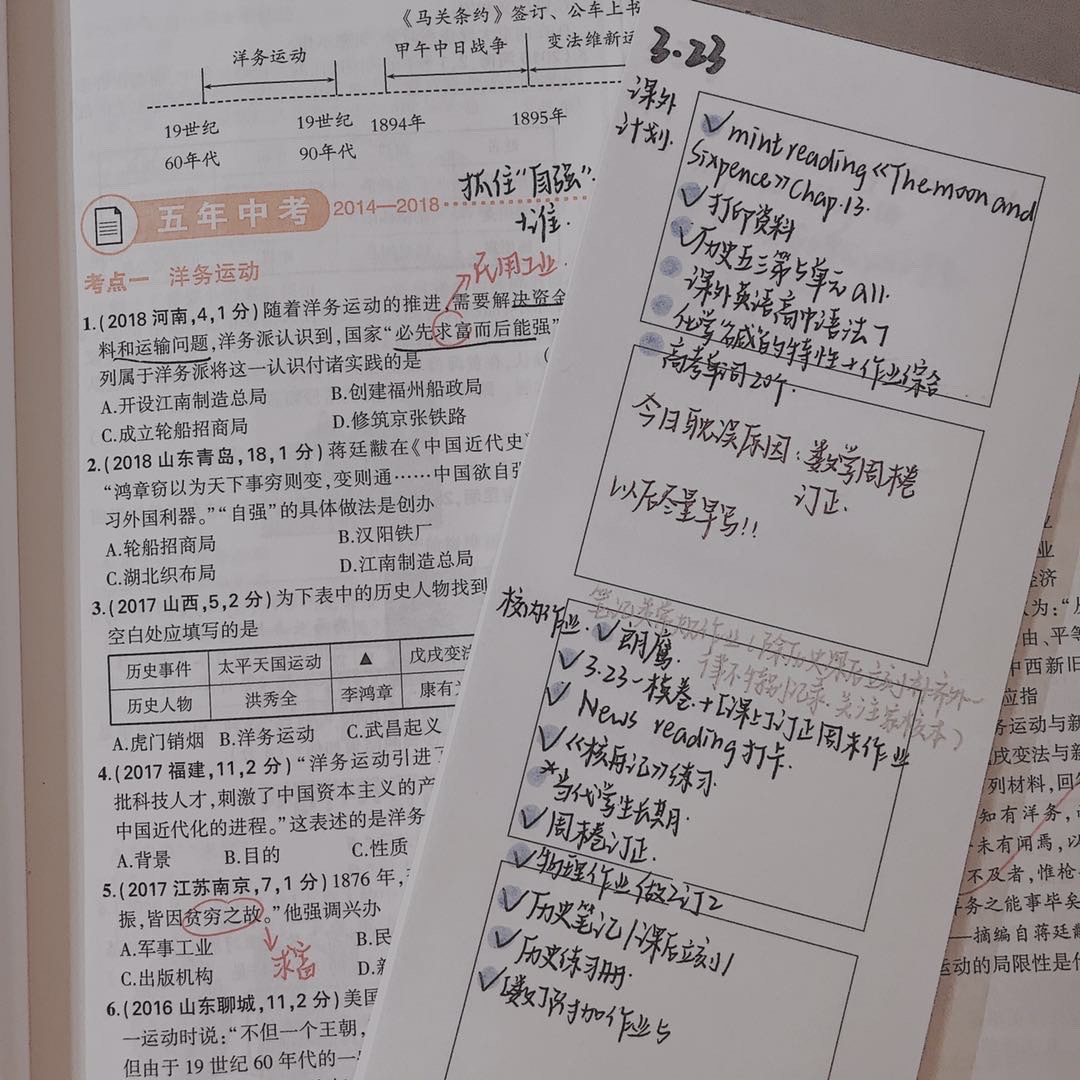 《马关条约》签订、公车上书
洋务运动
甲午中日战争
变法维新运
19世纪
60年代
19世纪
90年代
1894年
1895年
抓住“自强”.
五年中考 2014—2018
民用工业
考点一 洋务运动
1.(2018河南,4,1分)随着洋务运动的推进,需要解决资金
料和运输问题,洋务派认识到,国家“必先求富而后能强”
列属于洋务派将这一认识付诸实践的是 (
A.开设江南制造总局 B.创建福州船政局
C.成立轮船招商局 D.修筑京张铁路
2.(2018山东青岛,18,1分)蒋廷黻在《中国近代史》
“鸿章窃以为天下事穷则变,变则通……中国欲自强
习外国利器。”“自强”的具体做法是创办
A.轮船招商局 B.汉阳铁厂
C.湖北织布局 D.江南制造总局
3.(2017山西,5,2分)为下表中的历史人物找到
空白处应填写的是
历史事件 太平天国运动 ▲ 戊戌变法
历史人物 洪秀全 李鸿章 康有
A.虎门销烟 B.洋务运动 C.武昌起义
4.(2017福建,11,2分)“洋务运动引进了
批科技人才,刺激了中国资本主义的产
中国近代化的进程。”这表述的是洋务
A.背景 B.目的 C.性质
5.(2017江苏南京,7,1分)1876年,
振,皆因贫穷之故。”他强调兴办
A.军事工业 B.民
C.出版机构 D.新
求富
6.(2016山东聊城,11,2分)美国
一运动时说:“不但一个王朝,
但由于19世纪60年代的一
3.23
课外
计划.
✓mint reading《The moon and
sixpence》Chap.13.
✓打印资料
✓历史五三第5单元all.
课外英语高中语法7
化学碱的特性+作业综合
高考单词20个.
今日耽误原因:数学周卷
订正.
以后尽量早写!!
校内作业.
✓朗鹰.
✓3.23一核卷.+[课上]订正周末作业
✓News reading打卡.
✓《核舟记》练习.
*当代学生长期.
✓周卷订正.
✓物理作业做2订2
✓历史笔记/课后立刻/
✓历史练习册.
✓[数]附加作业5
业
经济
认为:“从
由、平等
中西新旧
应指
务运动与新
戊变法与新
列材料,回答
知有洋务,
未有闻焉,以
不及者,惟枪
军务之能事毕矣
——摘编自蒋廷黻
运动的局限性是什